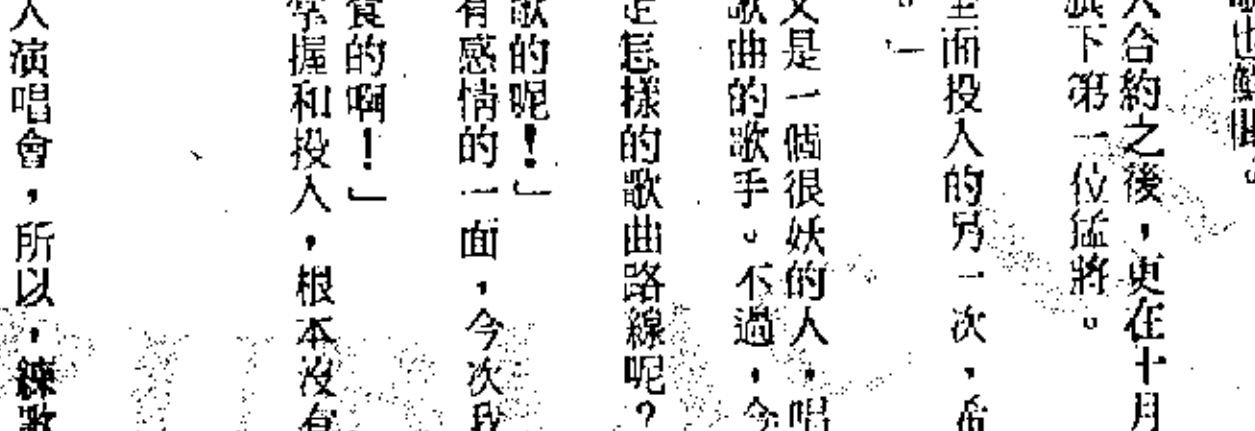 歌也鮮有。
人合約之後，更在十月
旗下第一位猛將。
全面投入的另一次，希
。」
又是一個很妖的人，唱
歌曲的歌手。不過，今
走怎樣的歌曲路線呢？
歌的呢！」
有感情的一面，今次我
食的啊！」
掌握和投入，根本沒有
人演唱會，所以，練歌